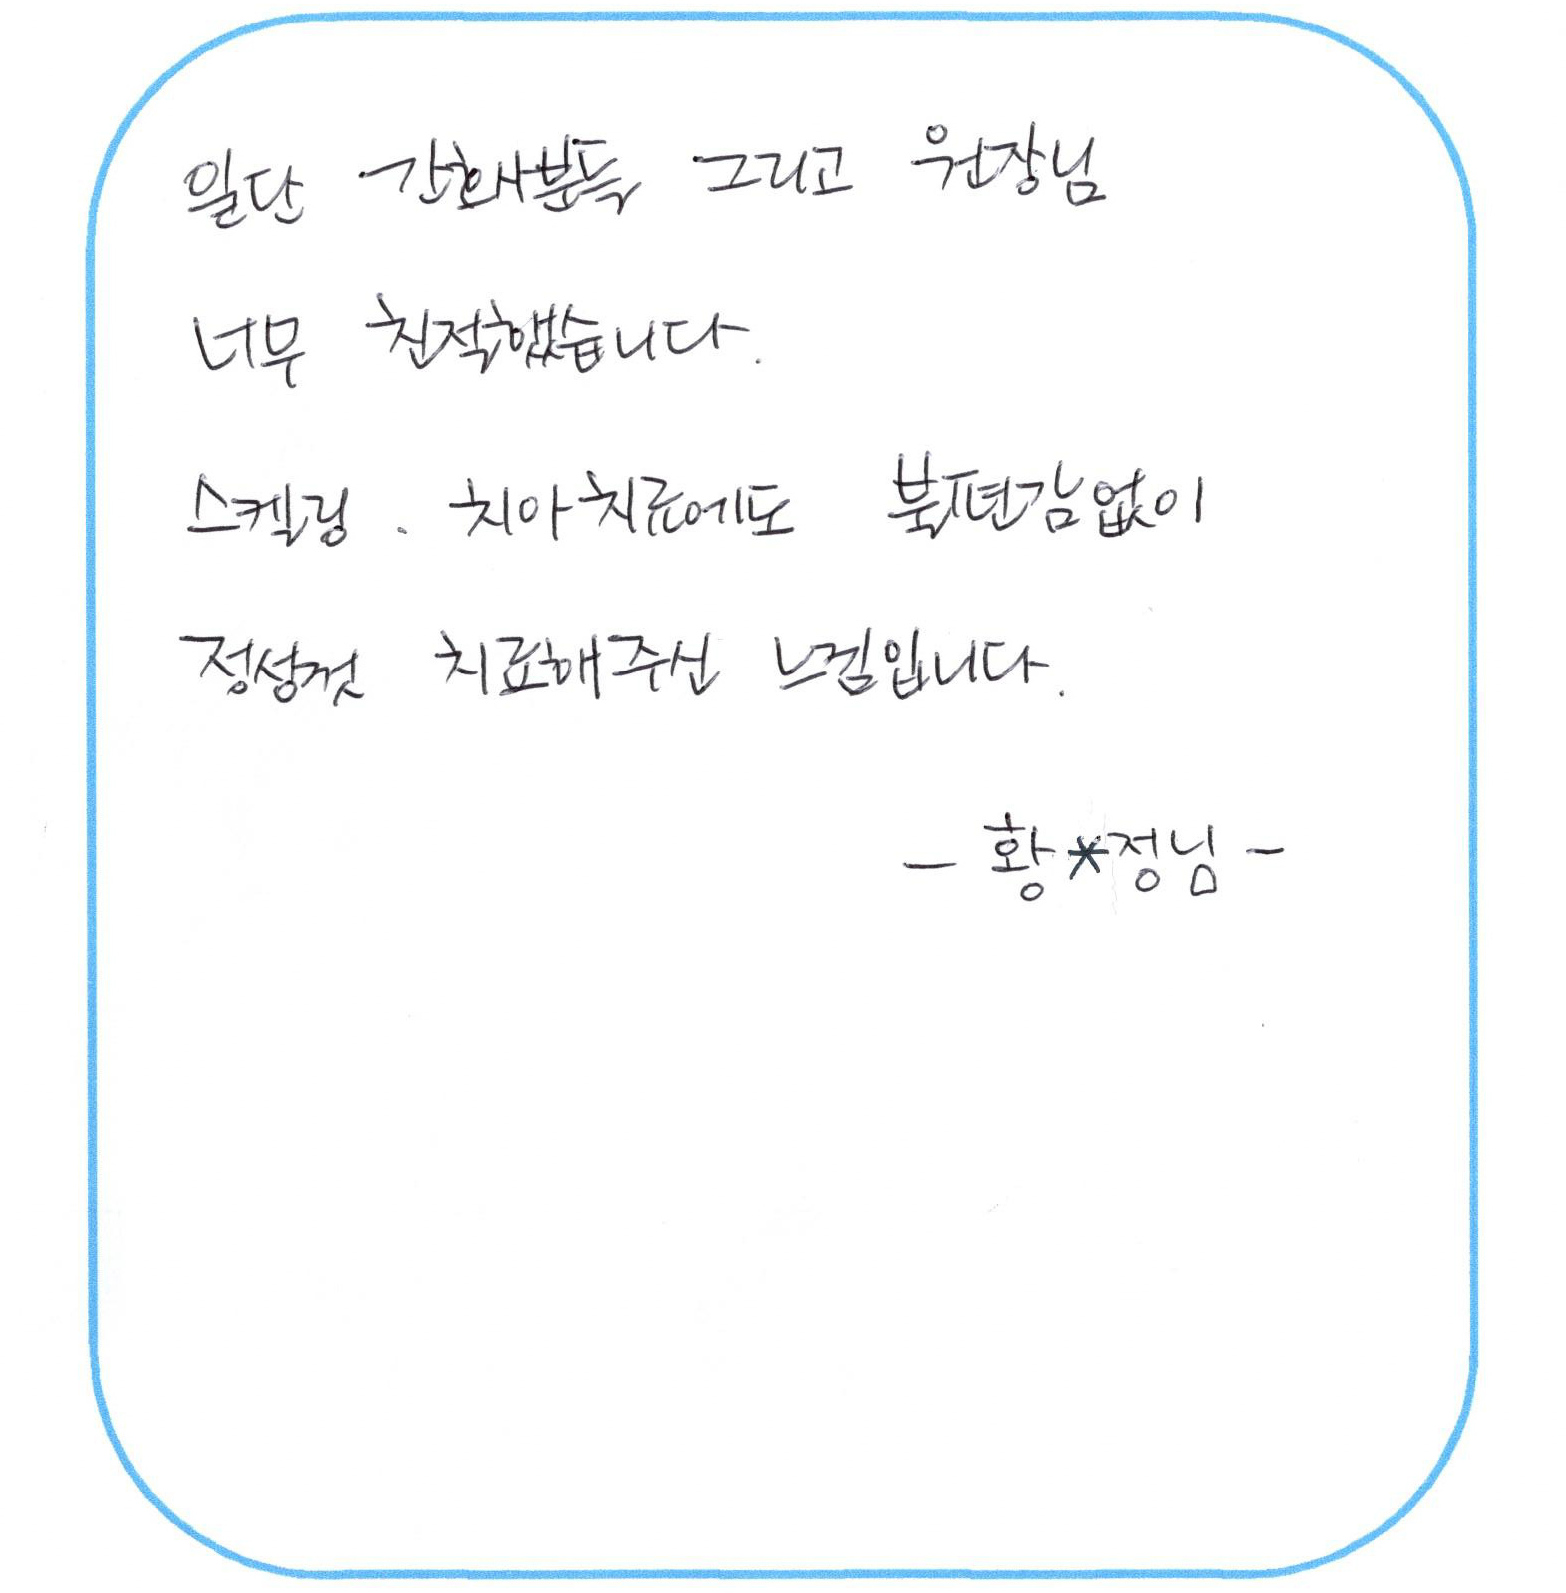 일단 간호사분들 그리고 원장님
너무 친절했습니다.
스켈링. 치아치료에도 불편감없이
정성껏 치료해주신 느낌입니다.
- 황*정님 -